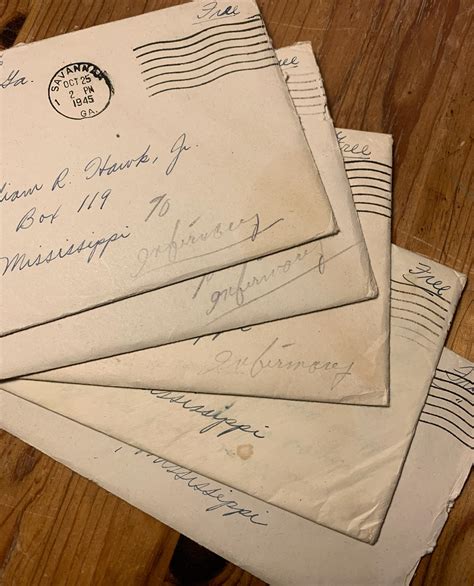 Free
Ga.
SAVANNAH
OCT 25
2 PM
1945
1
GA.
liam R. Hawk, Jr.
Box 119
Mississippi
To
infirmary
Free
infirmary
Free
infirmary
Free
ississippi
ississippi